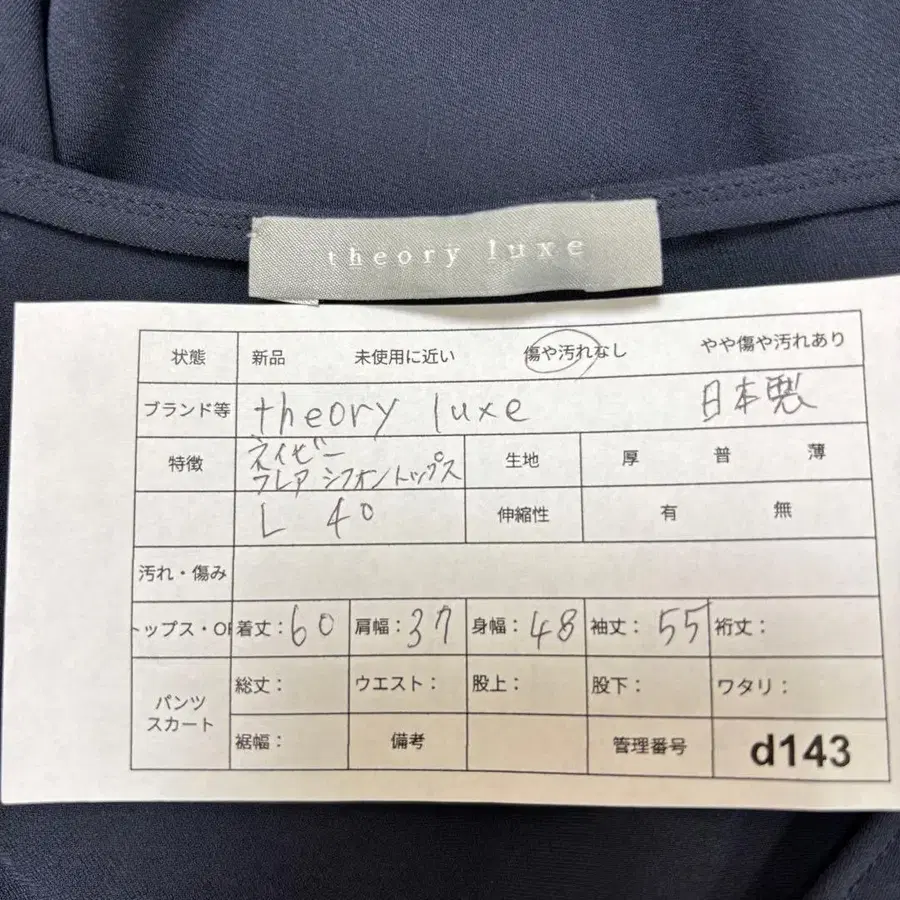 theory luxe
状態 新品 未使用に近い 傷や汚れなし やや傷や汚れあり
ブランド等 theory luxe 日本製
特徴 ネイビー フレア シフォントップス 生地 厚 普 薄
L 40 伸縮性 有 無
汚れ・傷み
トップス・OP 着丈:60 肩幅:37 身幅:48 袖丈:55 裄丈:
パンツ スカート 総丈: ウエスト: 股上: 股下: ワタリ:
裾幅: 備考 管理番号 d143